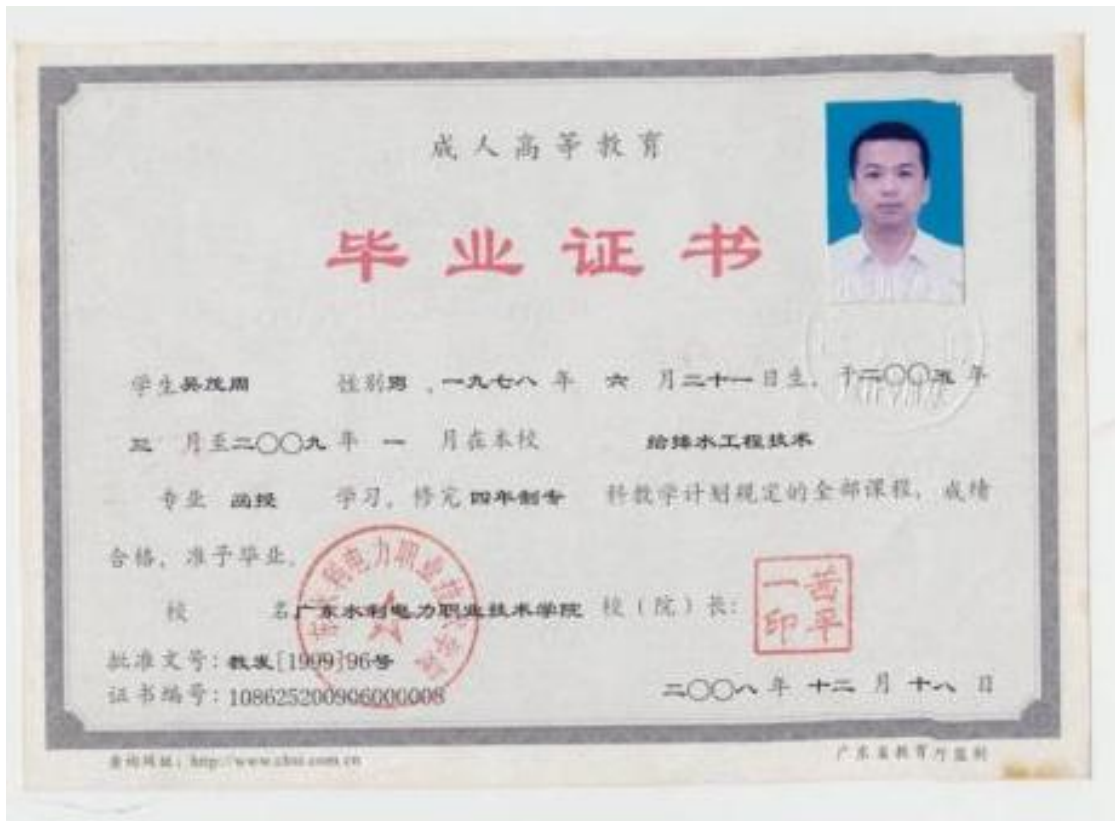 成人高等教育
毕业证书
学生吴茂周 性别男，一九七八年 六 月二十一日生，于二〇〇五年
三 月至二〇〇九年 一 月在本校 给排水工程技术
专业 函授 学习，修完四年制专 科教学计划规定的全部课程，成绩
合格，准予毕业。
校 名广东水利电力职业技术学院 校（院）长：
茜平一印
批准文号：教发[1999]96号
证书编号：108625200906000008
二〇〇八年 十二 月 十八 日
查询网址：http://www.chsi.com.cn 广东省教育厅监制